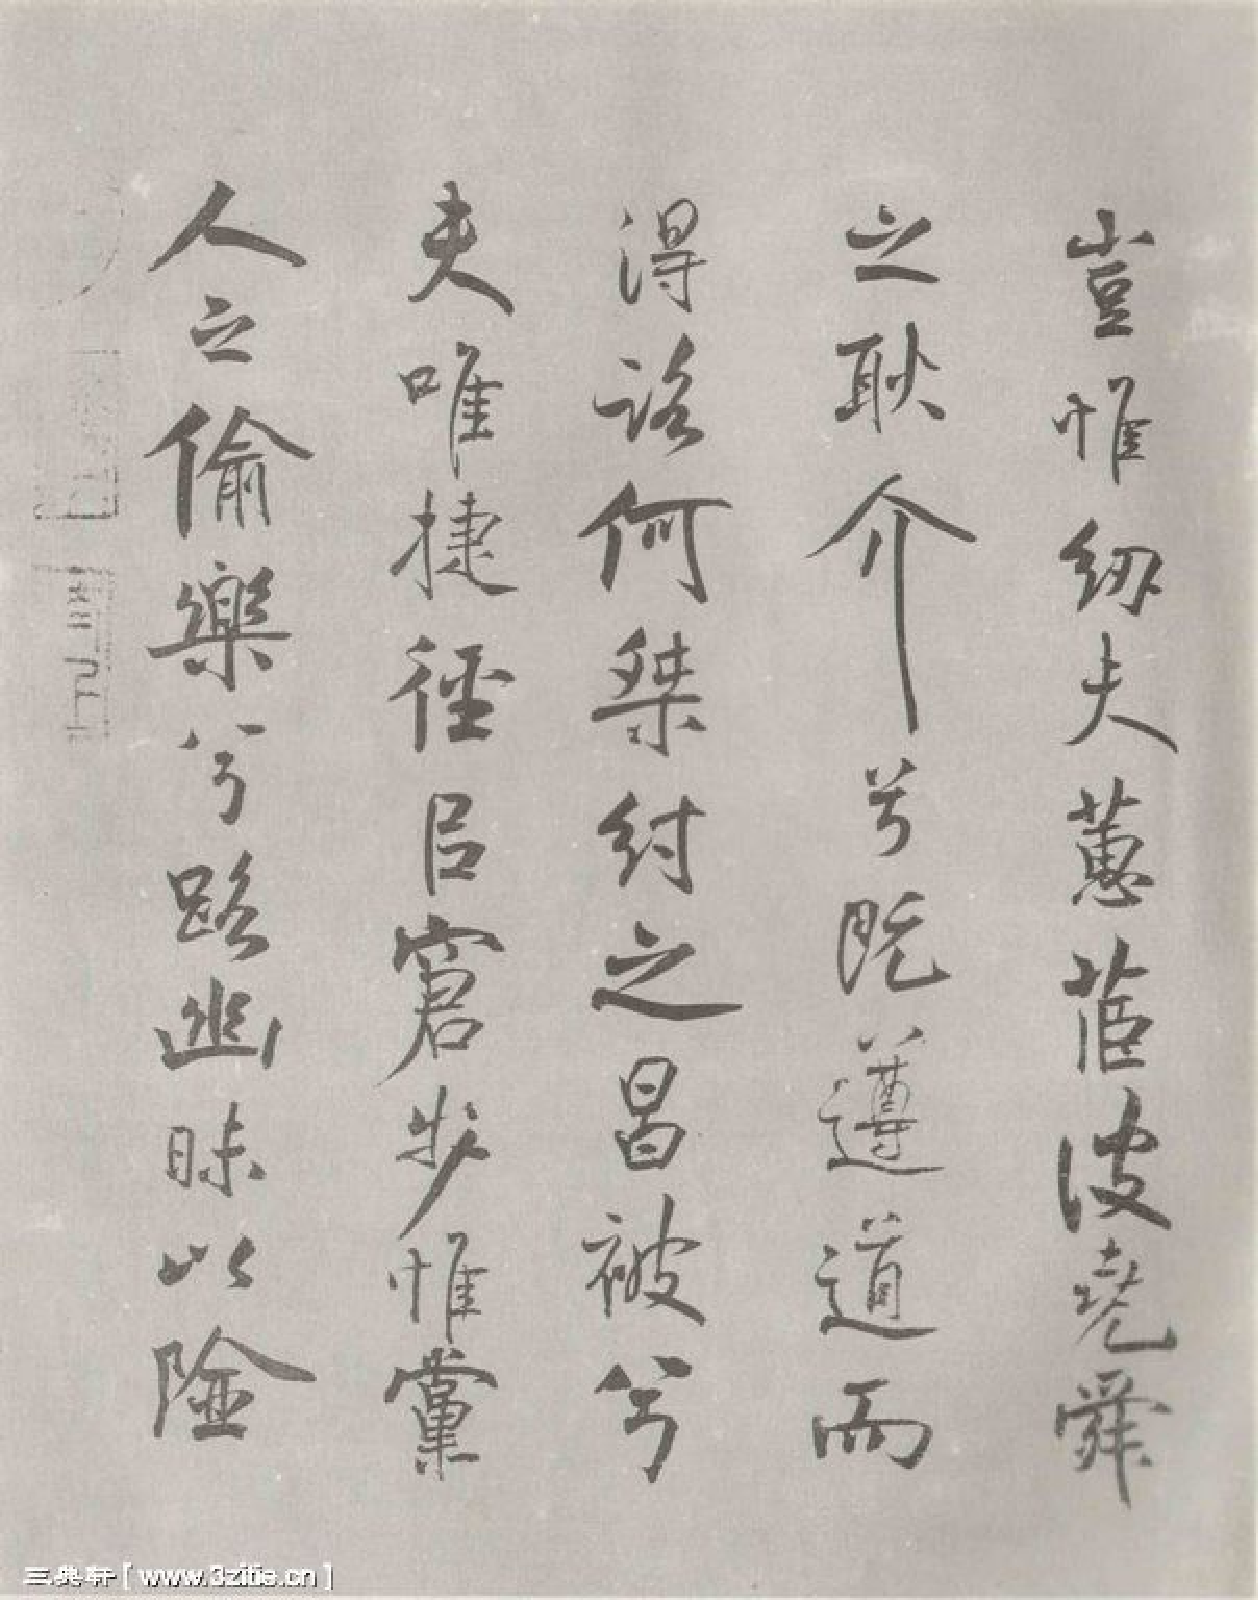 豈惟紉夫蕙茞彼堯舜
之耿介兮既遵道而
得路何桀紂之昌被兮
夫唯捷徑㠯窘步惟黨
人之偷樂兮路幽昧以險
三典轩[www.3zitie.cn]